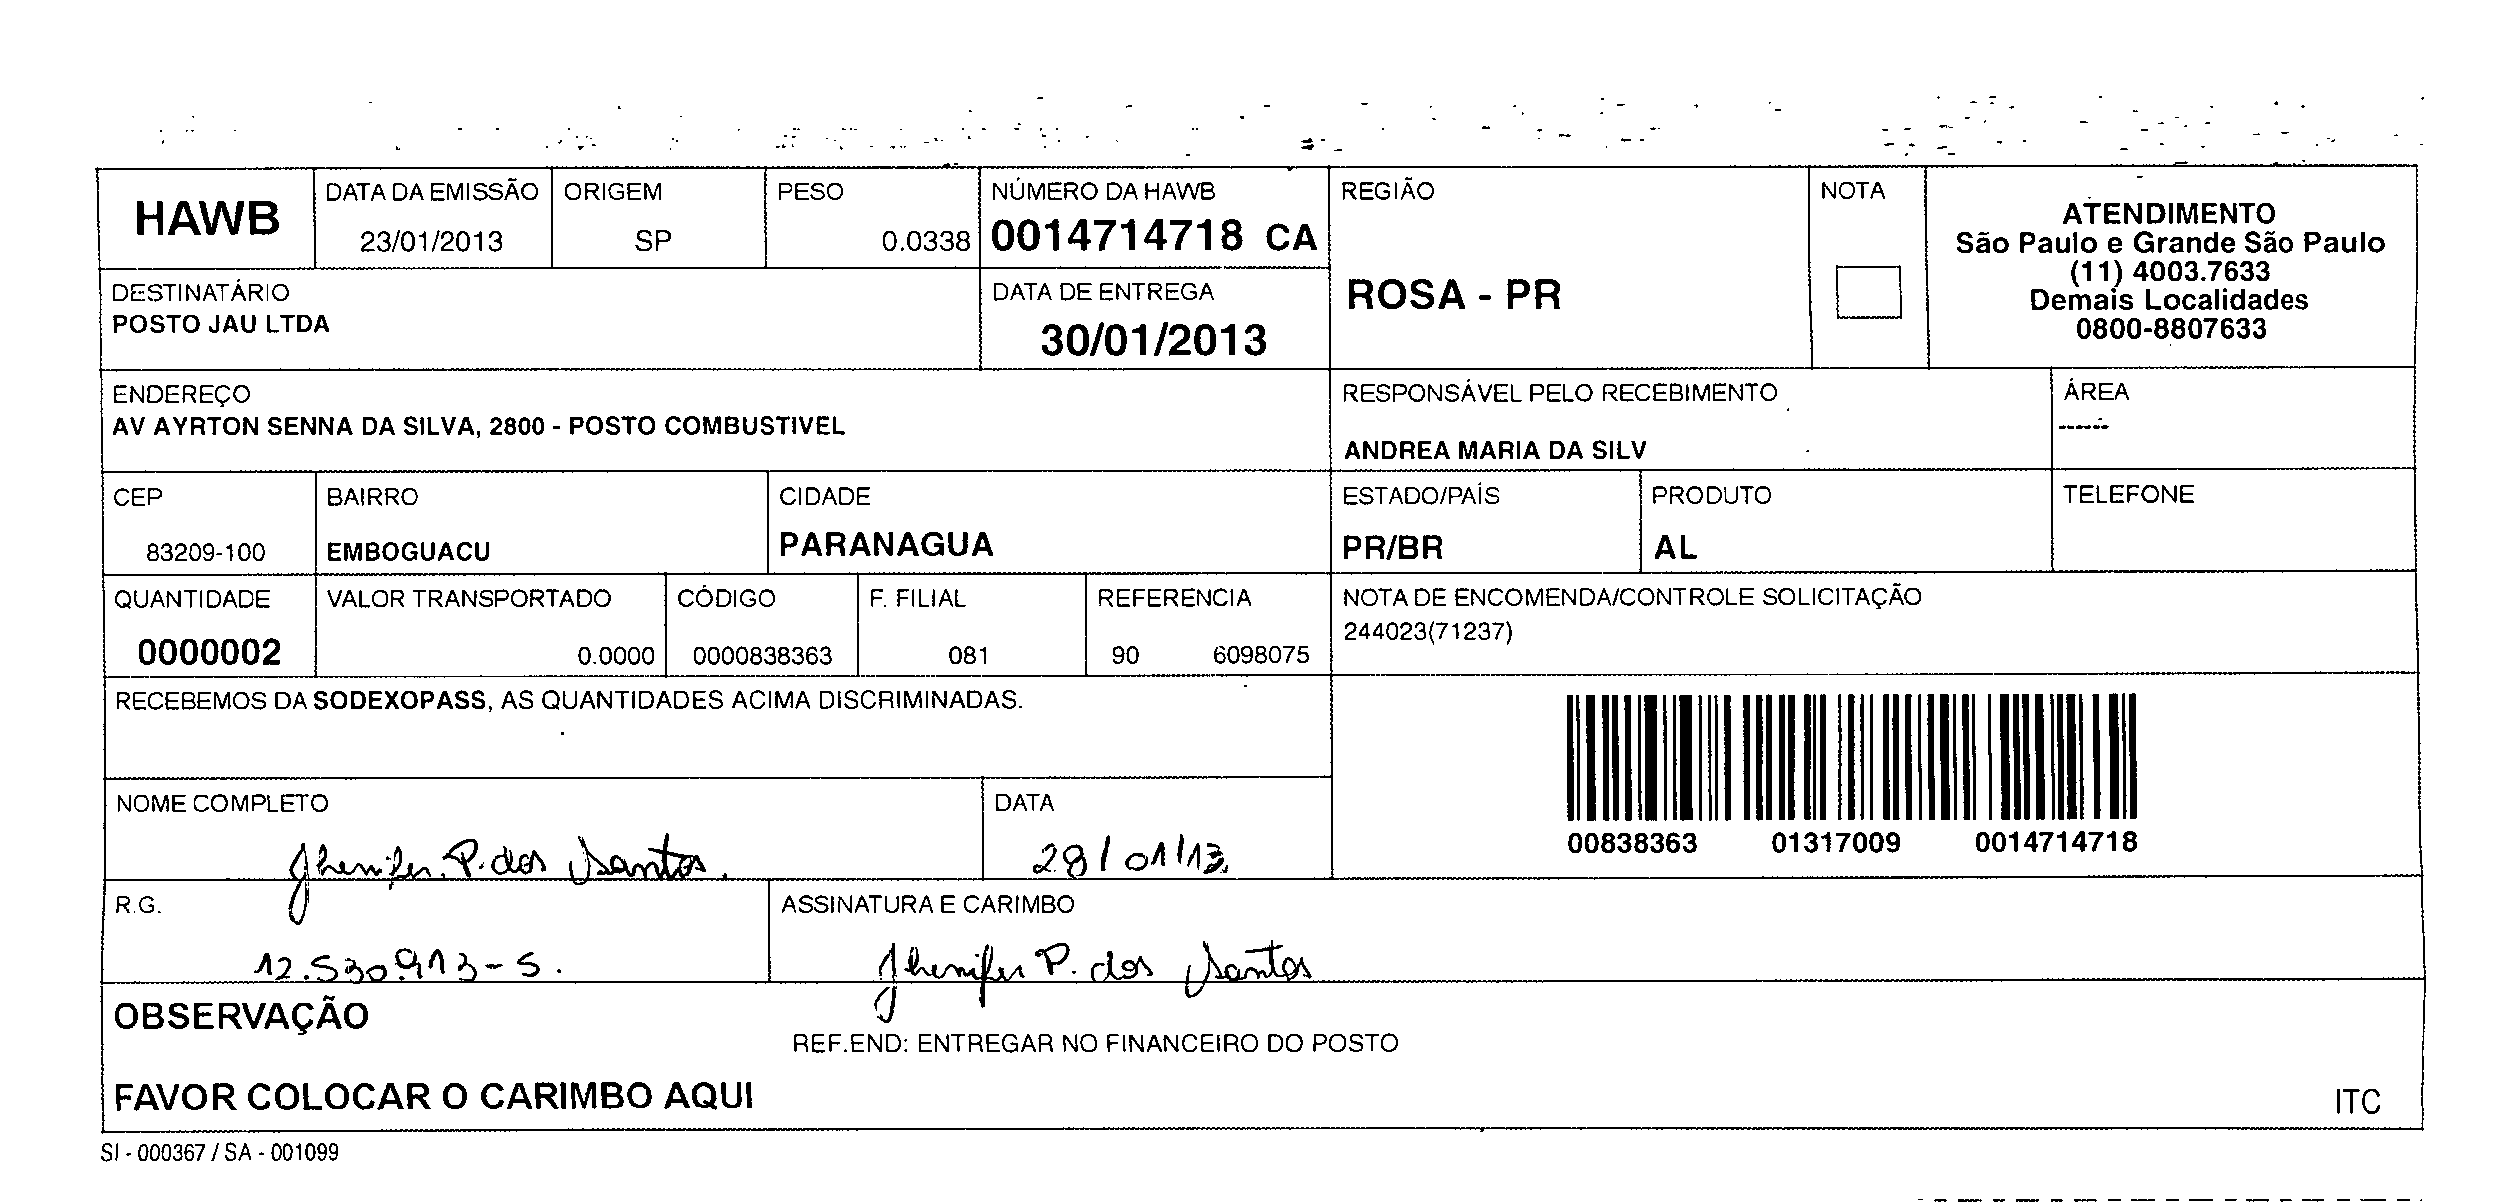 HAWB
DATA DA EMISSÃO
23/01/2013
ORIGEM
SP
PESO
0.0338
NÚMERO DA HAWB
0014714718 CA
REGIÃO
ROSA - PR
NOTA
ATENDIMENTO
São Paulo e Grande São Paulo
(11) 4003.7633
Demais Localidades
0800-8807633
DESTINATÁRIO
POSTO JAU LTDA
DATA DE ENTREGA
30/01/2013
ENDEREÇO
AV AYRTON SENNA DA SILVA, 2800 - POSTO COMBUSTIVEL
RESPONSÁVEL PELO RECEBIMENTO
ANDREA MARIA DA SILV
ÁREA
------
CEP
83209-100
BAIRRO
EMBOGUACU
CIDADE
PARANAGUA
ESTADO/PAÍS
PR/BR
PRODUTO
AL
TELEFONE
QUANTIDADE
0000002
VALOR TRANSPORTADO
0.0000
CÓDIGO
0000838363
F. FILIAL
081
REFERENCIA
90 6098075
NOTA DE ENCOMENDA/CONTROLE SOLICITAÇÃO
244023(71237)
RECEBEMOS DA SODEXOPASS, AS QUANTIDADES ACIMA DISCRIMINADAS.
00838363 01317009 0014714718
NOME COMPLETO
Jhenifer P. dos Santos.
DATA
28/01/13
R.G.
12.530.913-5.
ASSINATURA E CARIMBO
Jhenifer P. dos Santos
OBSERVAÇÃO
REF.END: ENTREGAR NO FINANCEIRO DO POSTO
FAVOR COLOCAR O CARIMBO AQUI
ITC
SI - 000367 / SA - 001099